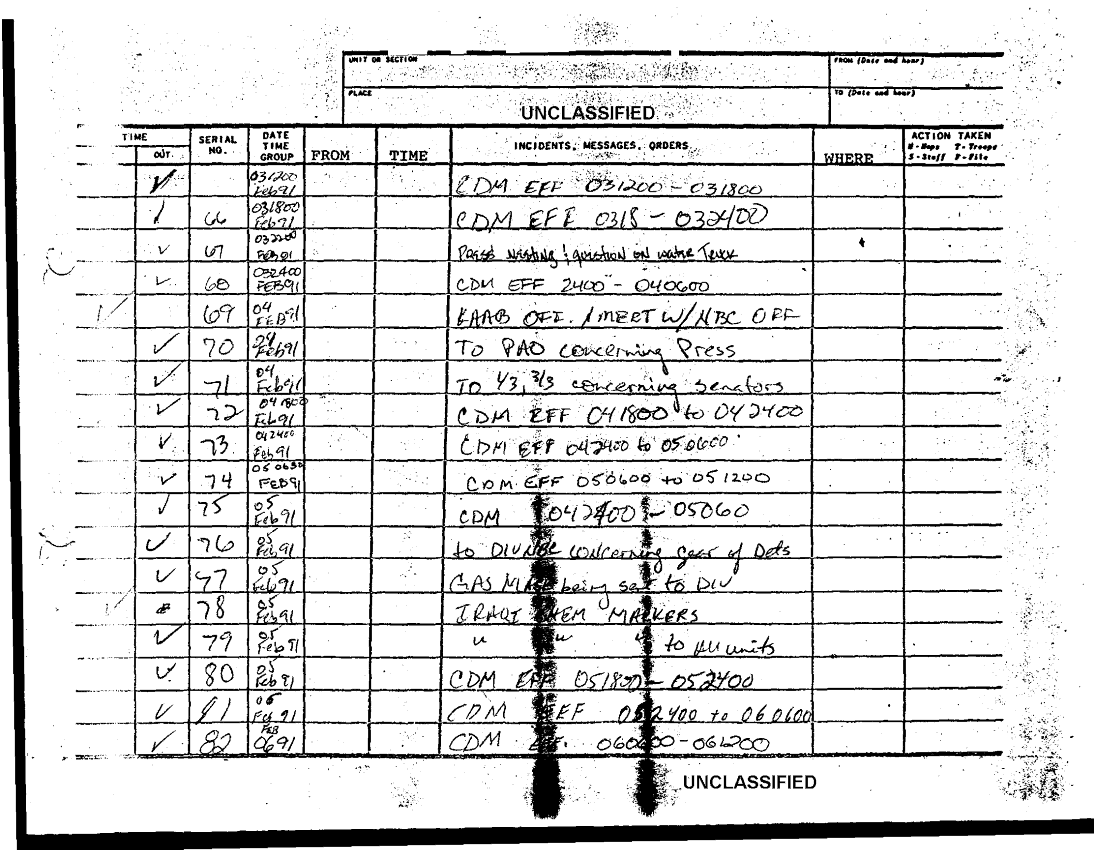 UNIT OR SECTION
FROM (Date and hour)
PLACE
TO (Date and hour)
UNCLASSIFIED
TIME OUT SERIAL NO. DATE TIME GROUP FROM TIME INCIDENTS, MESSAGES, ORDERS WHERE ACTION TAKEN
M - Maps T - Troops
S - Staff F - File
031200 Feb91 CDM EFF 031200 - 031800
66 031800 Feb91 CDM EFF 0318 - 032400
67 032200 Feb91 Press question on water Truck
68 032400 FEB91 CDM EFF 2400 - 040600
69 04 FEB91 W/ NBC OFF
70 Feb91 To PAO concerning Press
71 04 Feb91 TO 1/3, 3/3 concerning Senators
72 041800 Feb91 CDM EFF 041800 to 042400
73 042400 Feb91 CDM EFF 042400 to 050600
74 050630 FEB91 CDM EFF 050600 to 051200
75 05 Feb91 CDM 042400 - 05060
76 05 Feb91 to DIV NBC concerning gear of Dets
77 05 Feb91 GAS MASK being sent to DIV
78 05 Feb91 IRAQI CHEM MARKERS
79 05 Feb91 " " " to All units
80 05 Feb91 CDM EFF 051800 - 052400
81 05 Feb91 CDM EFF 052400 to 060600
82 FEB 0691 CDM EFF. 060600 - 061200
UNCLASSIFIED